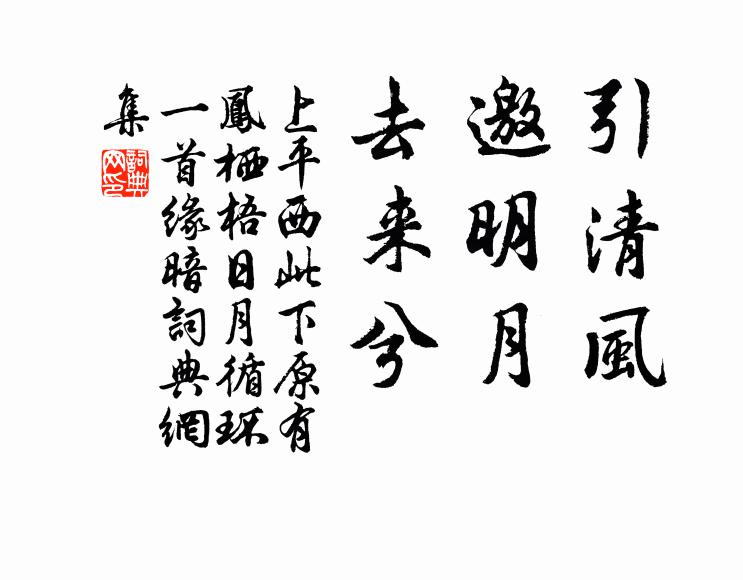 引清風
邀明月
去来兮
上平西此下原有
鳳栖梧日月循环
一首缘暗詞典網
集
詞典
网印